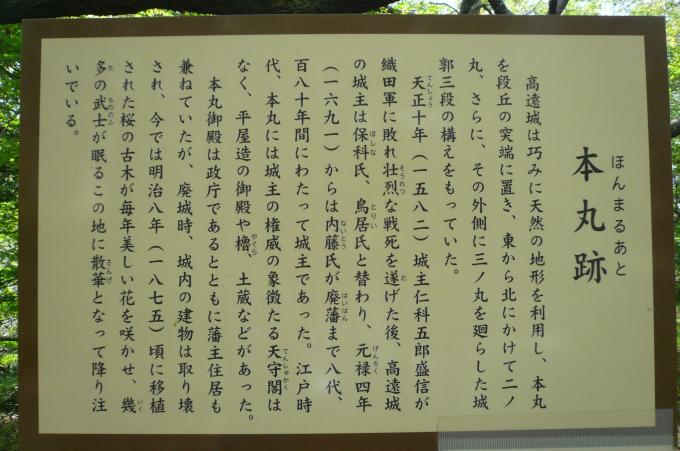 ほんまるあと
本丸跡
高遠城は巧みに天然の地形を利用し、本丸
を段丘の突端に置き、東から北にかけて二ノ
丸、さらに、その外側に三ノ丸を廻らした城
郭三段の構えをもっていた。
天正十年(一五八二)城主仁科五郎盛信が
織田軍に敗れ壮烈な戦死を遂げた後、高遠城
の城主は保科氏、鳥居氏と替わり、元禄四年
(一六九一)からは内藤氏が廃藩まで八代、
百八十年間にわたって城主であった。江戸時
代、本丸には城主の権威の象徴たる天守閣は
なく、平屋造の御殿や櫓、土蔵などがあった。
本丸御殿は政庁であるとともに藩主住居も
兼ねていたが、廃城時、城内の建物は取り壊
され、今では明治八年(一八七五)頃に移植
された桜の古木が毎年美しい花を咲かせ、幾
多の武士が眠るこの地に散華となって降り注
いでいる。